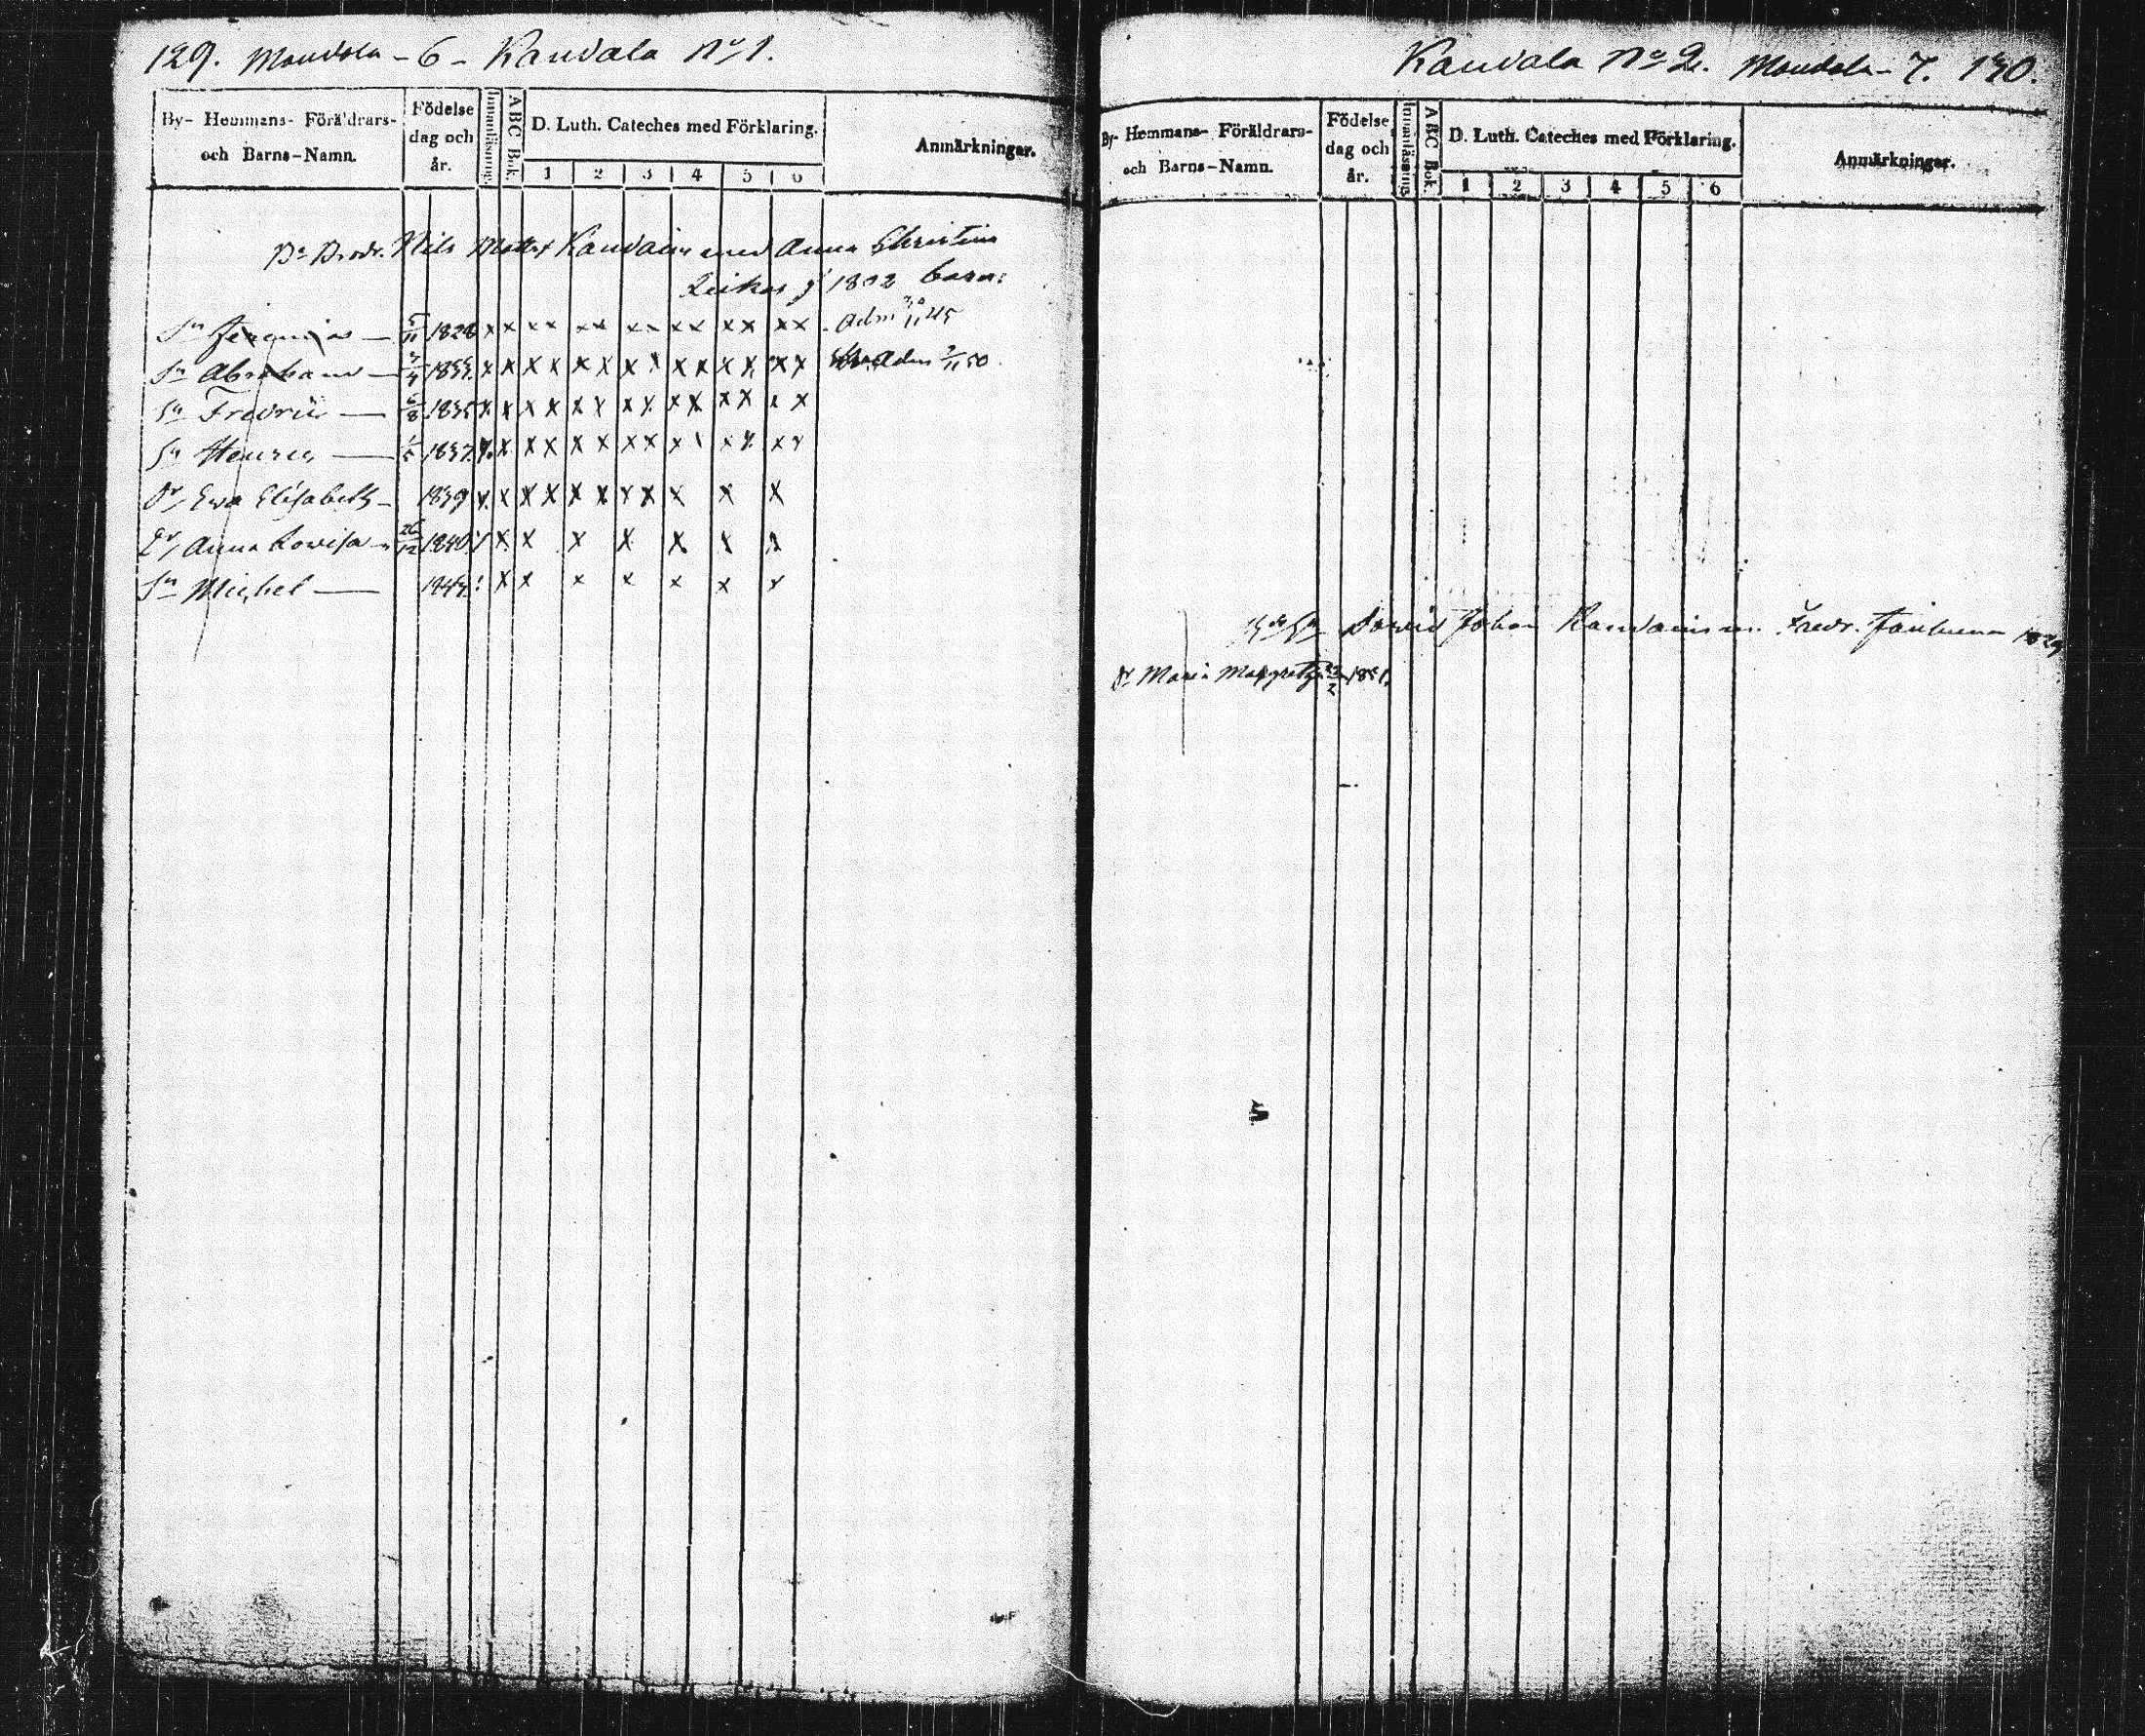 129. Mandola - 6 - Kandala No 1.
By- Hemmans- Föräldrars- och Barns-Namn.
Födelse dag och år.
Innanläsning.
ABC Bok.
D. Luth. Cateches med Förklaring.
1 2 3 4 5 6
Anmärkningar.
Do Brodr. Nils Matts Kandain med Anna Christina
Leikas f 1802 barn:
Sn Jeremias — 5/11 1828 x x x x x x x x x x x x x x Adm 45
Sn Abraham — 1833 x x x x x x x x x x x x x x Adm 50
Sn Fredric — 6/8 1835 x x x x x x x x x x x x x x
Sn Henric — 1837 x x x x x x x x x x x x x
Dr Ewa Elisabeth - 1839 x x x x x x x x x x x
Dr Anna Lovisa - 26/12 1840 x x x x x x x
Sn Michel — x x x x x x x
Kandala No 2. Mandola - 7. 130.
By- Hemmans- Föräldrars- och Barns-Namn.
Födelse dag och år.
Innanläsning.
ABC Bok.
D. Luth. Cateches med Förklaring.
1 2 3 4 5 6
Anmärkningar.
Sn David Johan Kandain m. Fredr. 1829
Dr Maria Margreta 23/2 1851.